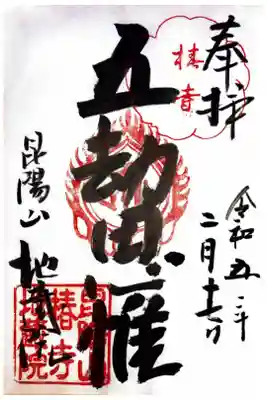 奉拝
椿寺
令和五年
二月十六日
五劫思惟
昆陽山 地蔵院
昆陽山
椿寺
地蔵院